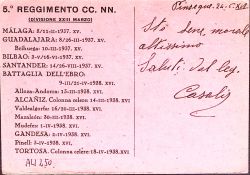 5.° REGGIMENTO CC. NN.
(DIVISIONE XXIII MARZO)
MÁLAGA: 8/II-II-1937. XV.
GUADALAJARA: 8/26-III-1937. XV.
Brihuega: 10-III-1937. XV.
BILBAO: 3-V/18-VI-1937. XV.
SANTANDER: 14/26-VIII-1937. XV.
BATTAGLIA DELL'EBRO:
9-III/21-IV-1938. XVI.
Alloza-Andorra: 13-III-1938. XVI.
ALCAÑIZ. Colonna celere 14-III-1938. XVI
Valdealgorfa: 16/20-III-1938. XVI.
Mazaleón: 30-III-1938. XVI.
Mudefer: 1-IV-1938. XVI.
GANDESA: 2-IV-1938. XVI.
Pinell: 3-IV-1938. XVI.
TORTOSA. Colonna celere 18-IV-1938. XVI
ALI 250
Sto bene, morale
altissimo
Saluti: Tel leg.
Casalis